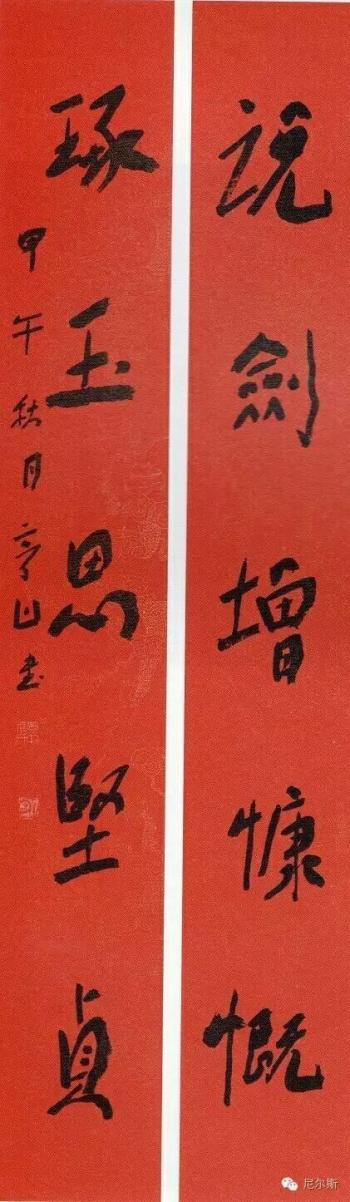 說劍增慷慨
琢玉思堅貞
甲午秋月亭山書
尼尔斯